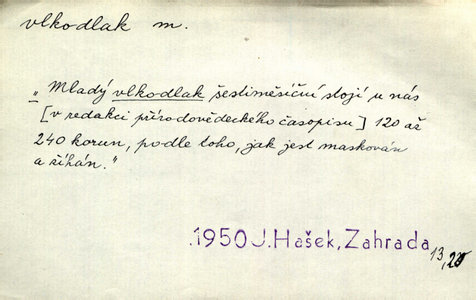 vlkodlak m.
„Mladý vlkodlak šestiměsíční stojí u nás
[v redakci přírodovědeckého časopisu] 120 až
240 korun, podle toho, jak jest maskován
a říhán."
.1950 J. Hašek, Zahrada
13,